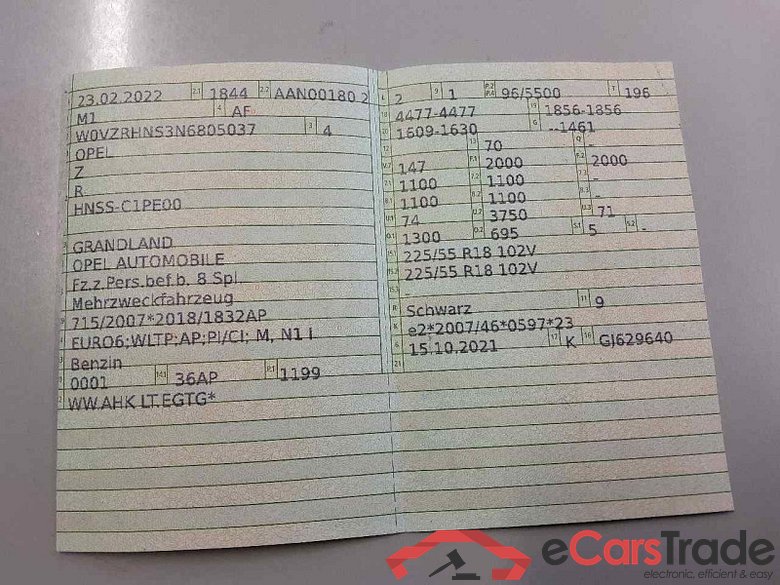 23.02.2022 2.1 1844 2.2 AAN00180 2
M1 4 AF
W0VZRHNS3N6805037 3 4
OPEL
Z
R
HNSS-C1PE00
GRANDLAND
OPEL AUTOMOBILE
Fz.z.Pers.bef.b. 8 Spl.
Mehrzweckfahrzeug
715/2007*2018/1832AP
EURO6;WLTP;AP;PI/CI; M, N1 I
Benzin
0001 14.1 36AP P.1 1199
WW.AHK LT.EGTG*
2 9 1 P.2 P.4 96/5500 T 196
4477-4477 19 1856-1856
1609-1630 G --1461
70 Q -
147 2000 2000
1100 1100 -
1100 1100 -
74 3750 71
1300 695 S.1 5 S.2 -
225/55 R18 102V
225/55 R18 102V
R Schwarz 11 9
K e2*2007/46*0597*23
6 15.10.2021 17 K 16 GJ629640
21
eCarsTrade
electronic, efficient & easy